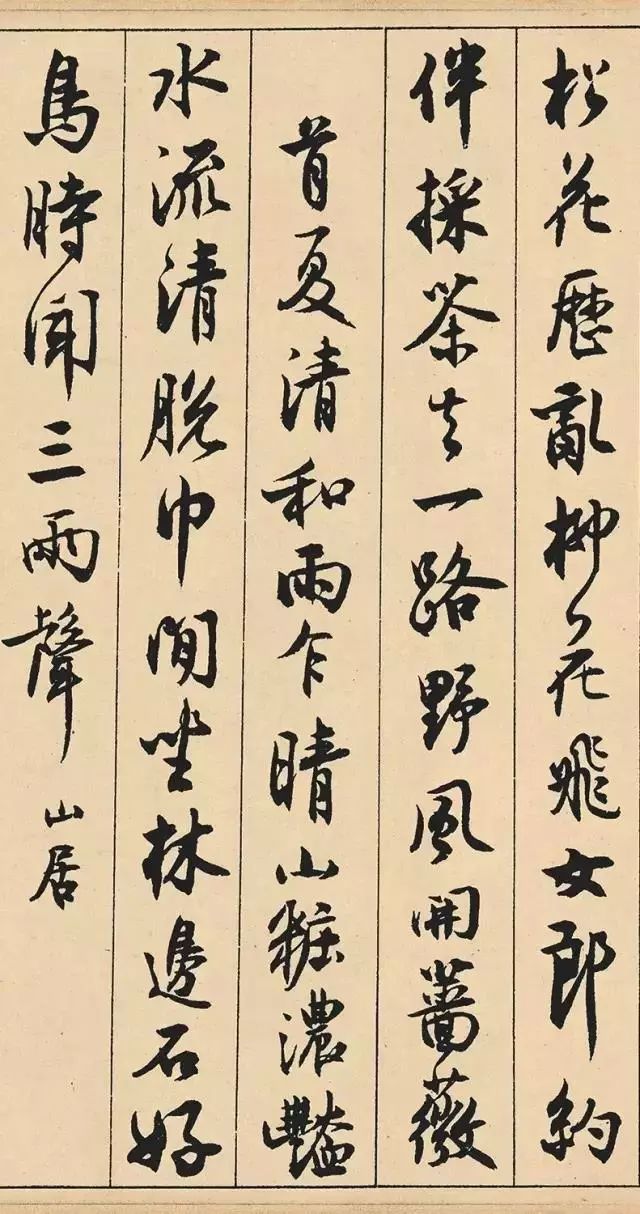 松花歷亂柳花飛女郎約
伴採茶去一路野風開薔薇
首夏清和雨乍晴山粧濃豔
水流清脫巾閒坐林邊石好
鳥時聞三兩聲 山居